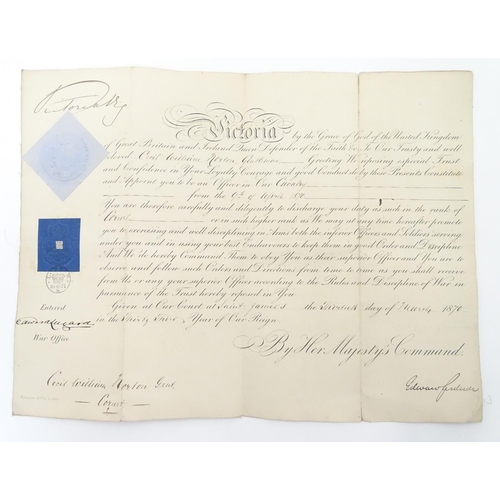 Victoria
by the Grace of God of the United Kingdom
of Great Britain and Ireland Queen Defender of the Faith &c To Our Trusty and well
beloved Cecil William Gent Greeting We reposing especial Trust
and Confidence in Your Loyalty Courage and good Conduct do by these Presents Constitute
and Appoint you to be an Officer in Our
from the
You are therefore carefully and diligently to discharge your duty as such in the rank of
or in such higher rank as We may at any time hereafter promote
you to exercising and well disciplining in Arms both the inferior Officers and Soldiers serving
under you and in using your best Endeavours to keep them in good Order and Discipline
And We do hereby Command Them to Obey You as their superior Officer and You are to
observe and follow such Orders and Directions from time to time as you shall receive
from Us or any your superior Officer according to the Rules and Discipline of War in
pursuance of the Trust hereby reposed in You
Given at Our Court at Saint James's the day of 1870
in the Thirty Third Year of Our Reign
By Her Majesty's Command
Entered
Edward Lugard
War Office
Cecil William Gent
Cornet
Edward